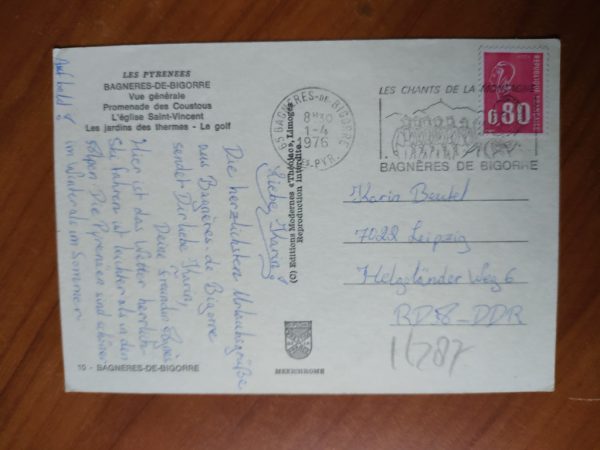 LES PYRENEES
BAGNERES-DE-BIGORRE
Vue générale
Promenade des Coustous
L'église Saint-Vincent
Les jardins des thermes - Le golf
Liebe Karin!
Die herzlichsten Urlaubsgrüße
aus Bagnères-de-Bigorre
sendet Dir liebe Karin,
Deine Freundin
Hier ist das Wetter herrlich
Ski fahren ist leichter als in den
Alpen. Die Pyrenäen sind schöner
im Winter als im Sommer.
Auf bald!
10 - BAGNERES-DE-BIGORRE
(C) Editions Modernes « Théojac », Limoges
Reproduction interdite.
MEXICHROME
65 BAGNERES-DE-BIGORRE
8H30
1-4
1976
HTES-PYR.
LES CHANTS DE LA MONTAGNE
BAGNÈRES DE BIGORRE
REPUBLIQUE FRANÇAISE
0,80
Karin Beutel
7022 Leipzig
Helgoländer Weg 6
DDR